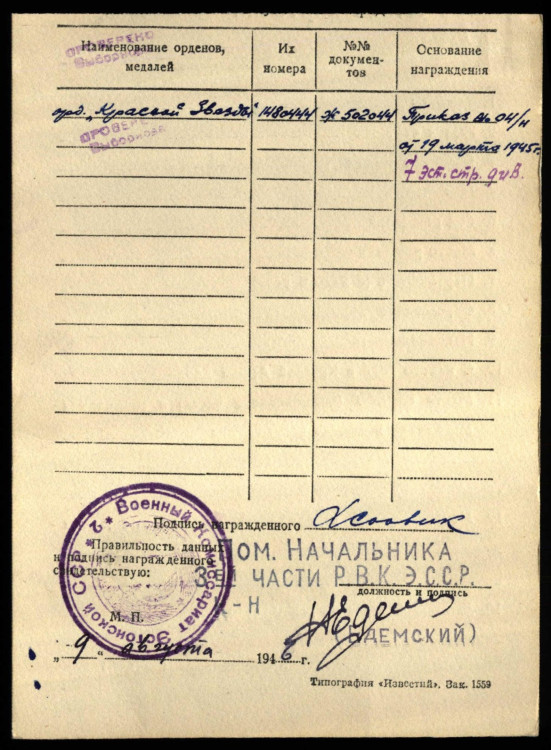 ПРОВЕРЕНО
Выборнова
Наименование орденов, медалей
Их номера
№№ документов
Основание награждения
орд. „Красной Звезды" 1480444 Ж 502044 Приказ № 04/н
ПРОВЕРЕНО
Выборнова
от 19 марта 1945г.
7 эст. стр. див.
Подпись награжденного
Правильность данных
и подпись награжденного
свидетельствую:
Пом. Начальника
части Р.В.К. Э.С.С.Р.
должность и подпись
М. П.
(ЕДЕМСКИЙ)
„9" августа 1946 г.
2 * Военный Комиссариат Эстонской ССР *
Типография «Известий». Зак. 1559